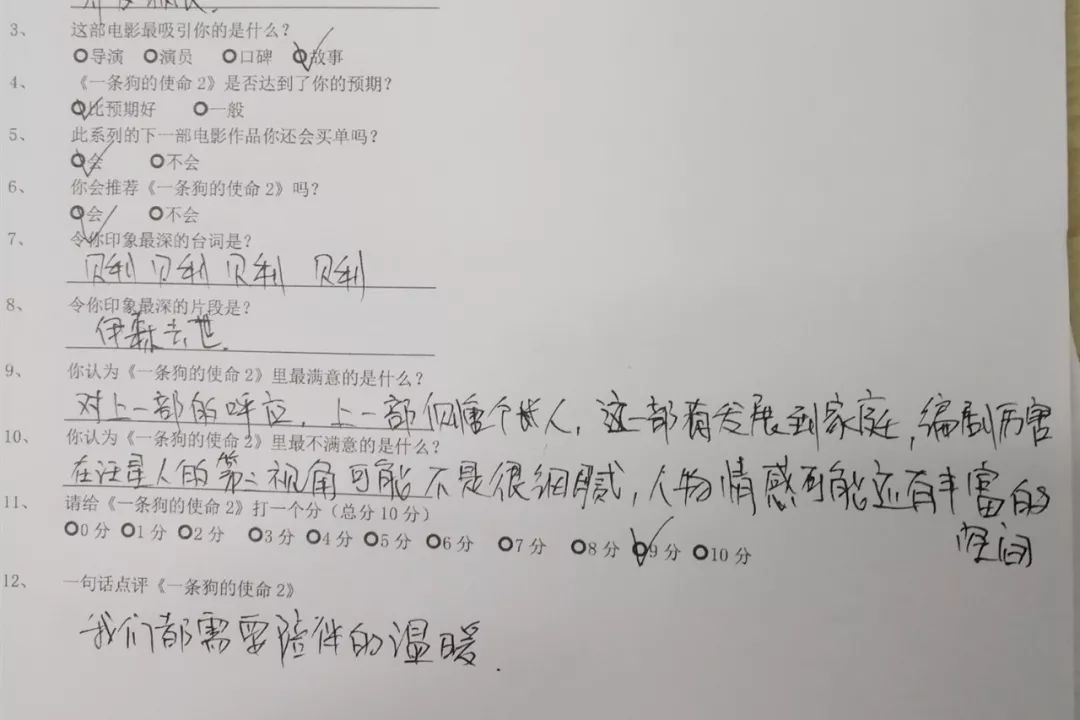 3、 这部电影最吸引你的是什么？
导演 演员 口碑 故事
4、 《一条狗的使命2》是否达到了你的预期？
比预期好 一般
5、 此系列的下一部电影作品你还会买单吗？
会 不会
6、 你会推荐《一条狗的使命2》吗？
会 不会
7、 令你印象最深的台词是？
贝利 贝利 贝利 贝利
8、 令你印象最深的片段是？
伊森去世.
9、 你认为《一条狗的使命2》里最满意的是什么？
对上一部的呼应，上一部 个 人，这一部有发展到家庭，编剧厉害
10、 你认为《一条狗的使命2》里最不满意的是什么？
在汪星人的第二视角可能不是很细腻，人物情感可能还有丰富的
空间
11、 请给《一条狗的使命2》打一个分（总分10分）
0分 1分 2分 3分 4分 5分 6分 7分 8分 9分 10分
12、 一句话点评《一条狗的使命2》
我们都需要陪伴的温暖.